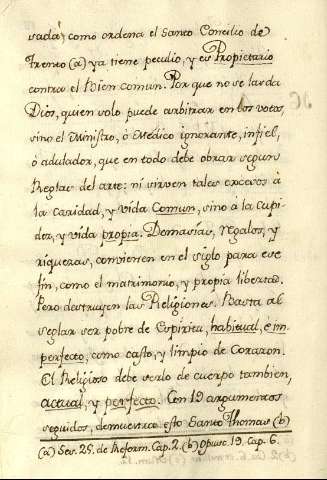 usada; como ordena el Santo Concilio de
Trento (a) ya tiene peculio, y es Propietario
contra el Bien comun. Por que no se la da
Dios, quien solo puede arbitrar en los votos,
sino el Ministro, ò Médico ignorante, infiel,
ò adulador, que en todo debe obrar segun
Reglas del arte: ni sirven tales excesos à
la caridad, y vida Comun, sino à la cupi-
dez, y vida propia. Demasias, regalos, y
riquezas, convienen en el siglo para ese
fin, como el matrimonio, y propia libertad.
Pero destruyen las Religiones. Basta al
seglar ser pobre de Espiritu, habitual, è im-
perfecto, como casto, y limpio de Corazon.
El Religioso debe serlo de cuerpo tambien,
actual, y perfecto. Con 19 argumentos
seguidos, demuestra esto Santo Thomas (b)
(a) Ses. 25. de Reform. Cap. 2. (b) Opusc. 19. Cap. 6.